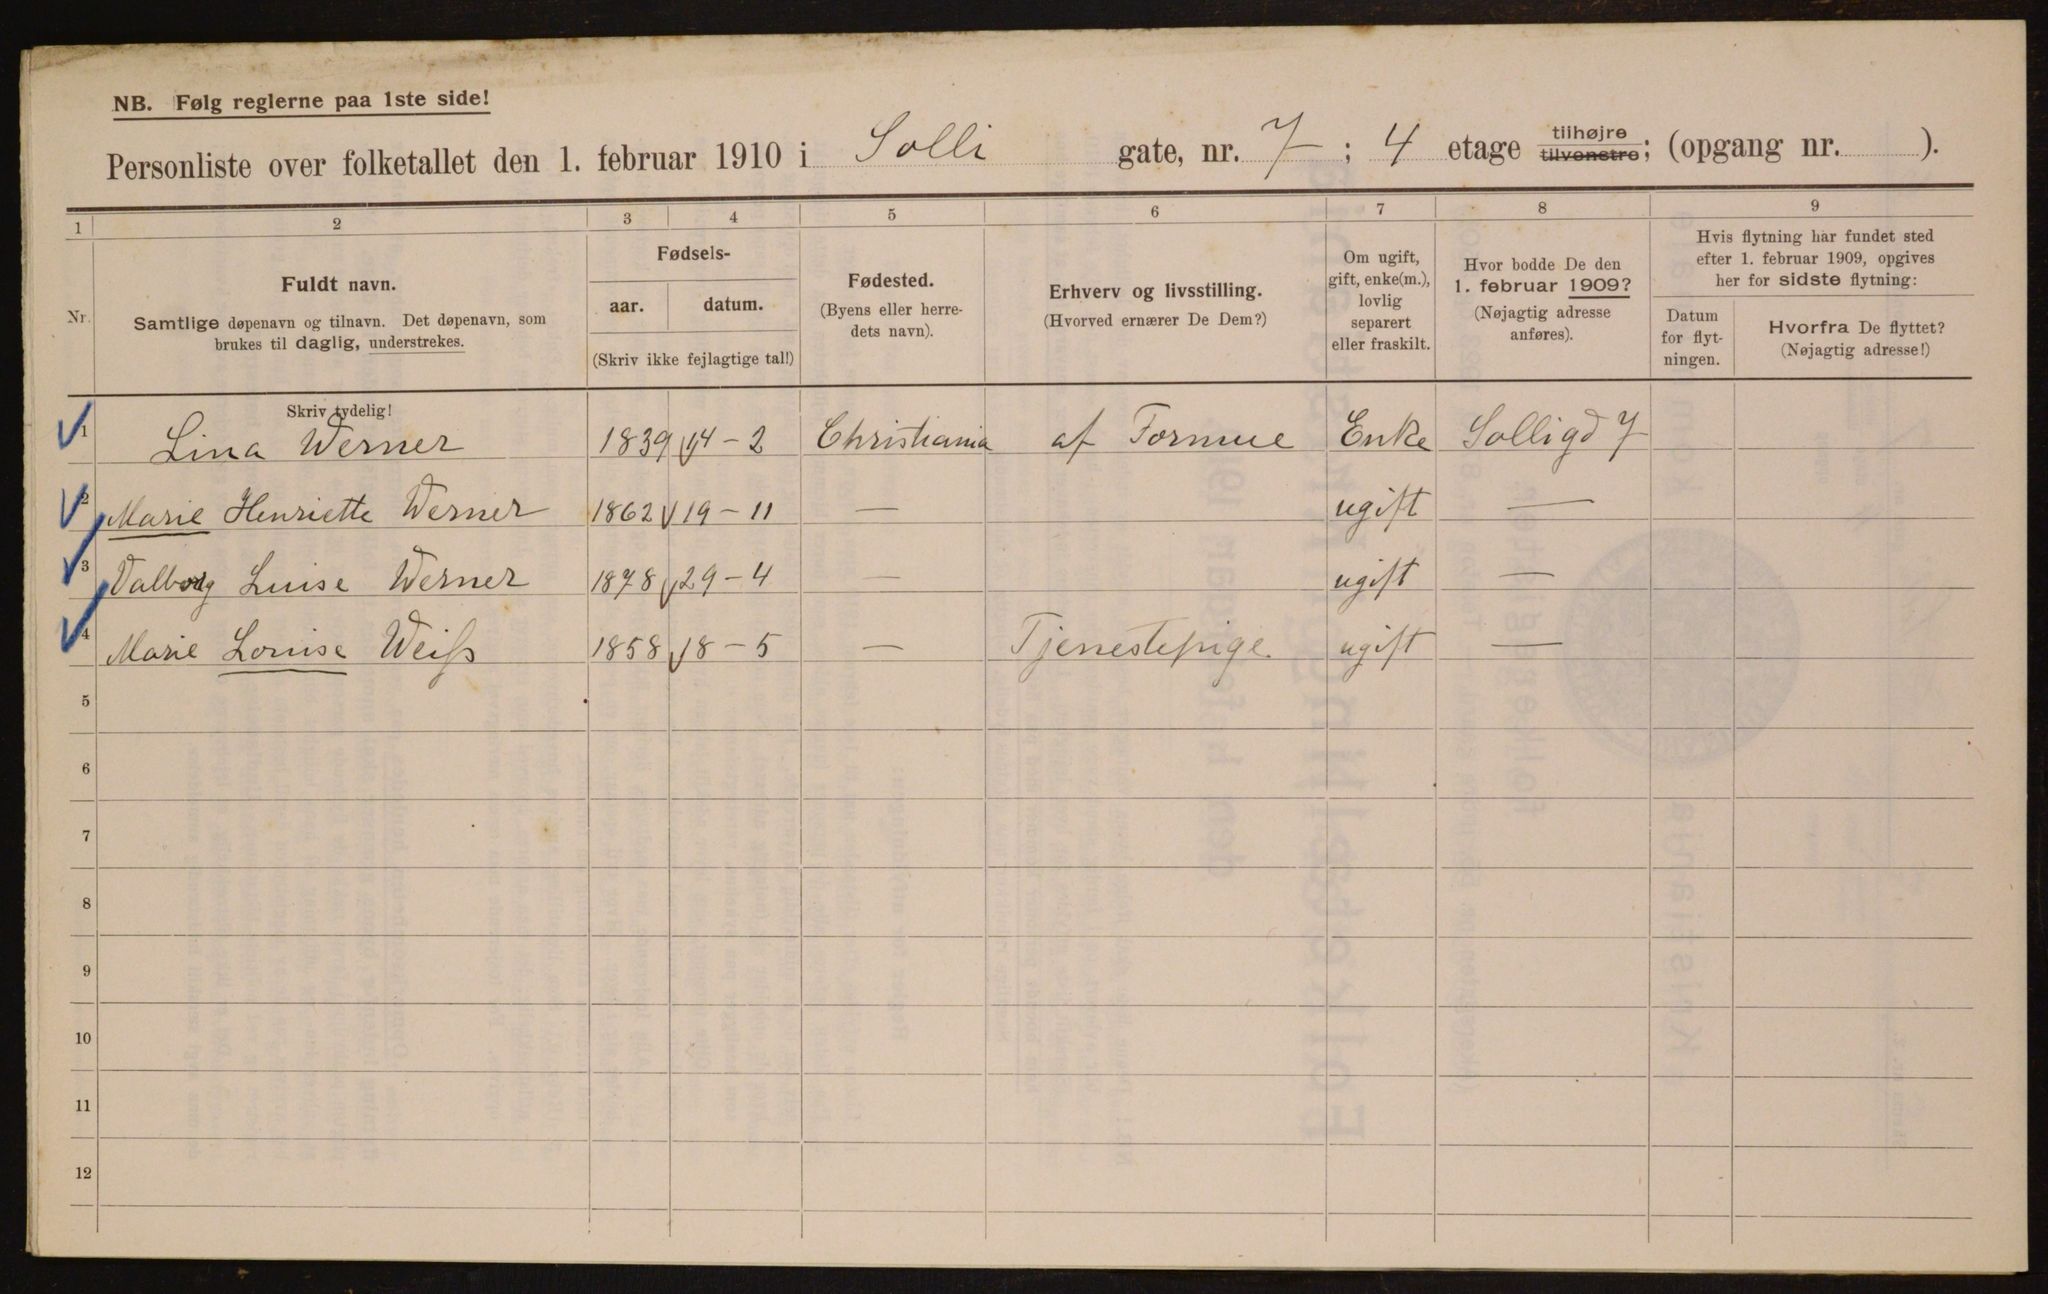 NB. Følg reglerne paa 1ste side!
Personliste over folketallet den 1. februar 1910 i Solli gate, nr. 7; 4 etage tilhøjre tilvenstre; (opgang nr. ).
1 2 3 4 5 6 7 8 9
Nr.
Fuldt navn.
Samtlige døpenavn og tilnavn. Det døpenavn, som
brukes til daglig, understrekes.
Fødsels-
aar. datum.
(Skriv ikke fejlagtige tal!)
Fødested.
(Byens eller herre-
dets navn).
Erhverv og livsstilling.
(Hvorved ernærer De Dem?)
Om ugift,
gift, enke(m.),
lovlig
separert
eller fraskilt.
Hvor bodde De den
1. februar 1909?
(Nøjagtig adresse
anføres).
Hvis flytning har fundet sted
efter 1. februar 1909, opgives
her for sidste flytning:
Datum
for flyt-
ningen.
Hvorfra De flyttet?
(Nøjagtig adresse!)
Skriv tydelig!
1 Lina Werner 1839 14-2 Christiania af Formue Enke Solligd 7
2 Marie Henriette Werner 1862 19-11 — ugift —
3 Valborg Luise Werner 1878 29-4 — ugift —
4 Marie Louise Weiss 1858 18-5 — Tjenestepige. ugift —
5
6
7
8
9
10
11
12